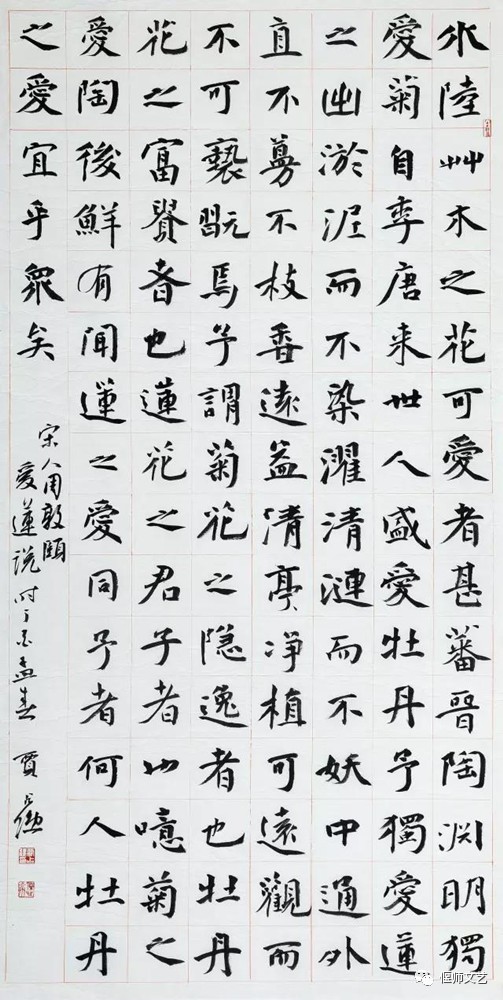 水陸艸木之花可愛者甚蕃晉陶淵明獨
愛菊自李唐来世人盛愛牡丹予獨愛蓮
之出淤泥而不染濯清漣而不妖中通外
直不蔓不枝香遠益清亭淨植可遠觀而
不可褻翫焉予謂菊花之隱逸者也牡丹
花之富貴者也蓮花之君子者也噫菊之
愛陶後鮮有聞蓮之愛同予者何人牡丹
之愛宜乎衆矣
宋人周敦頤
愛蓮説 时丁酉孟春 賈
偃师文艺